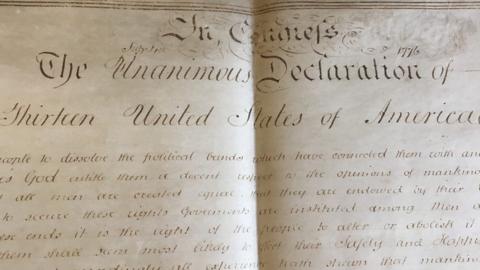 In Congress
1776
The Unanimous Declaration of
Thirteen United States of America
people to dissolve the political bands which have connected them with
God entitle them a decent respect to the opinions of
all men are created equal that they are endowed by their
to secure these rights Goverments are instituted among Men
ese ends it is the right of the people to alter or abolish it
them shall seem most likely to effect their Safety and
all experience hath shewn that